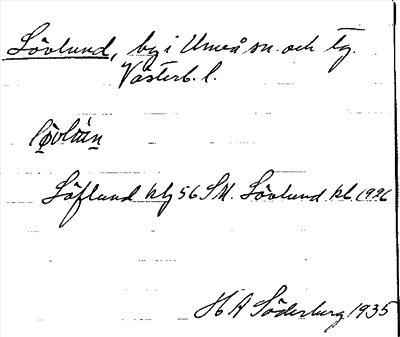 Lövlund, by i Umeå sn. och tg.
Västerb. l.
Löflund 56 SM. Lövlund kl 1926
H A Söderburg 1935